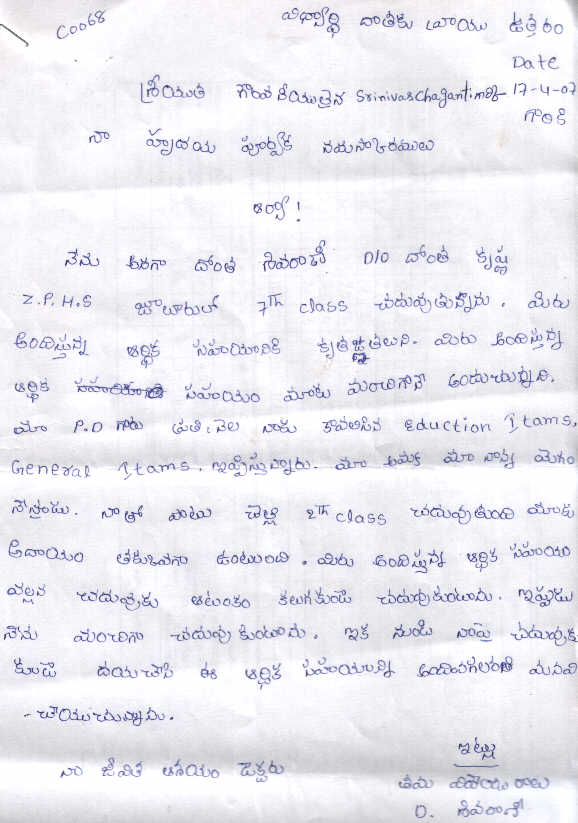 C0068
విధ్యార్థి దాతకు వ్రాయు ఉత్తరం
Date
శ్రీయుత గౌరవనీయులైన Srinivas Chaganti 17-4-07
గారికి
నా హృదయ పూర్వక నమస్కారములు
ఆర్య!
నేను అనగా దొంత శివరాణి D/O దొంత కృష్ణ
Z.P.H.S జూలూరులో 7TH class చదువుతున్నాను. మీరు
అందిస్తున్న ఆర్థిక సహయానికి కృతజ్ఞతలుని. మీరు అందిస్తున్న
ఆర్థిక సహయం మాకు మంచిగానే అందుచున్నది.
మా P.D గారు ప్రతి నెల నాకు కావలసిన Eduction Itams,
General Itams. ఇప్పిస్తున్నారు. మా అమ్మ మా నాన్న మెగం
నేస్తాండు. నాతో పాటు చెల్లి 2TH class చదువుతుంది మాకు
ఆదాయం తక్కువగా ఉంటుంది. మీరు అందిస్తున్న ఆర్థిక సహయం
వల్లన చదువుకు ఆటంకం కలుగకుండ చదువుకుంటాను. ఇప్పుడు
నేను మంచిగా చదువు కుంటాను. ఇక నుండి నాపై చదువుకు
కుండ దయచేసి ఈ ఆర్థిక సహయాన్ని అందించగలరని మనవి
చేయుచున్నాను.
ఇట్లు
నా జీవిత ఆశయం డాక్టరు
తమ విధేయురాలు
D. శివరాణి